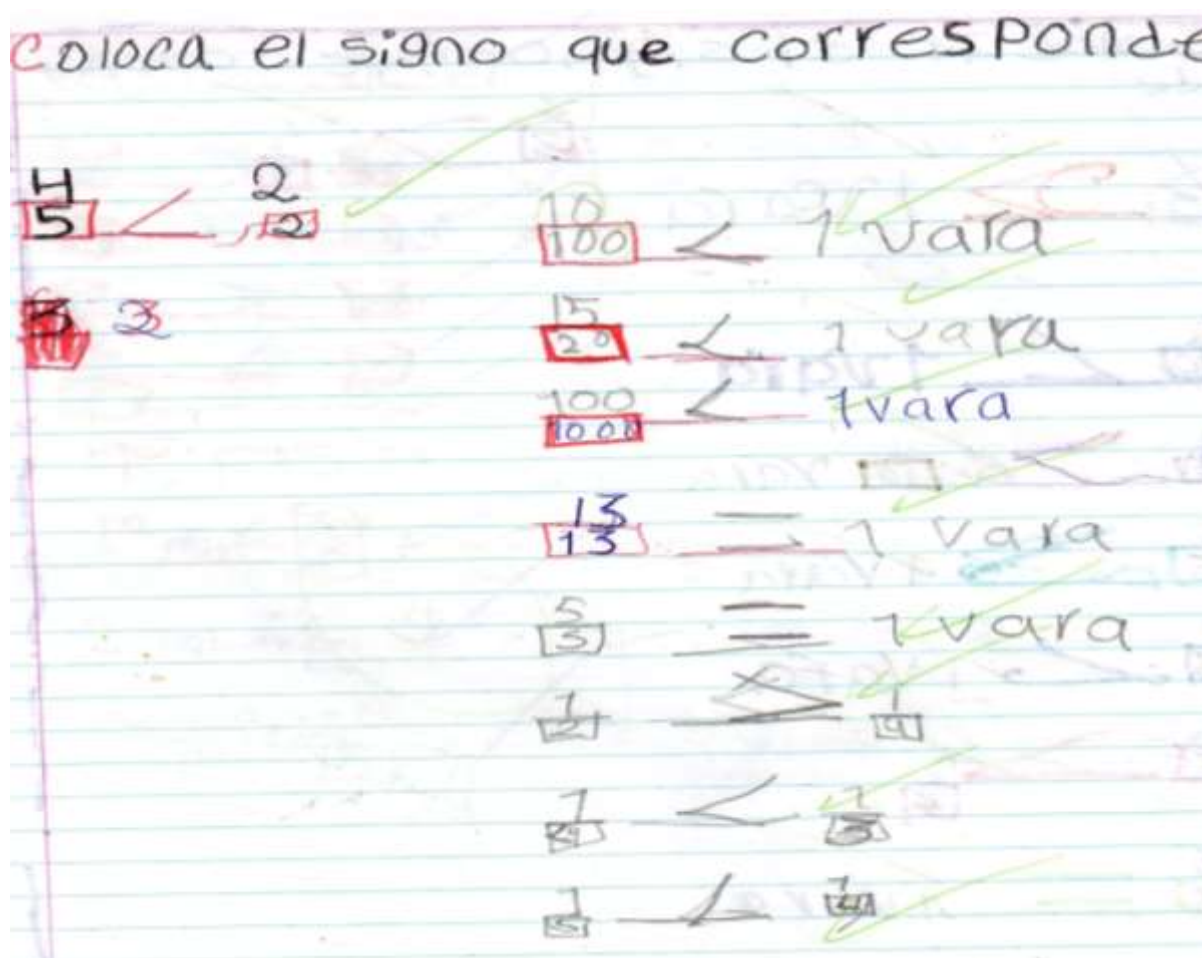 Coloca el signo que corresponde
4
5 < 2
2
3 3
10
100 < 1 vara
15
20 < 1 vara
100
1000 < 1 vara
13
13 = 1 Vara
5
5 = 1 vara
1
2 > 1
4
1
< 1
3
1
5 < 1
4